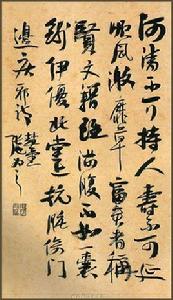 河清不可恃人壽不可延
順風激靡草富貴者稱
賢文籍雖滿腹不如一囊
錢伊優北堂上抗髒倚門
邊 疾邪詩 趙壹